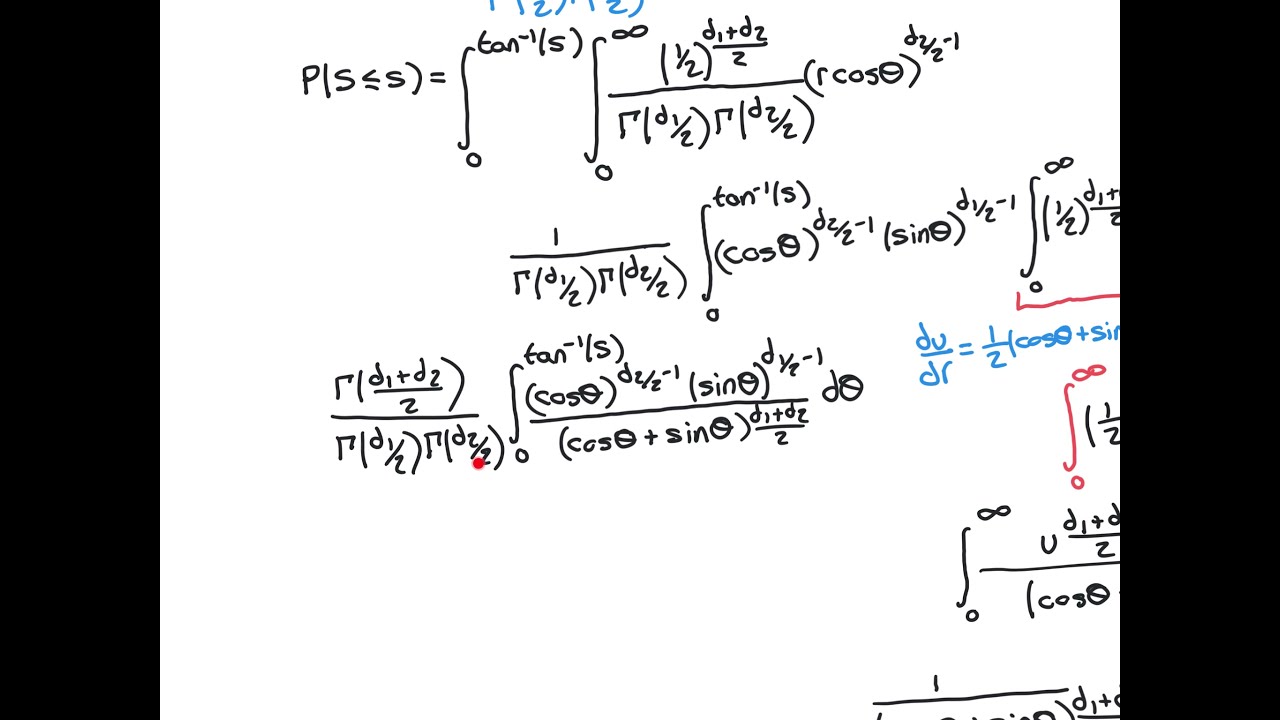 P(S ≤ s) = ∫₀^{tan⁻¹(s)} ∫₀^∞ (1/2)^{(d₁+d₂)/2} / (Γ(d₁/2)Γ(d₂/2)) (r cosθ)^{d₂/2-1}
1 / (Γ(d₁/2)Γ(d₂/2)) ∫₀^{tan⁻¹(s)} (cosθ)^{d₂/2-1} (sinθ)^{d₁/2-1} ∫₀^∞ (1/2)
du/dr = 1/2 (cosθ + sin
Γ((d₁+d₂)/2) / (Γ(d₁/2)Γ(d₂/2)) ∫₀^{tan⁻¹(s)} (cosθ)^{d₂/2-1} (sinθ)^{d₁/2-1} / (cosθ + sinθ)^{(d₁+d₂)/2} dθ
∫₀^∞ (1/2
∫₀^∞ u / (cosθ
1